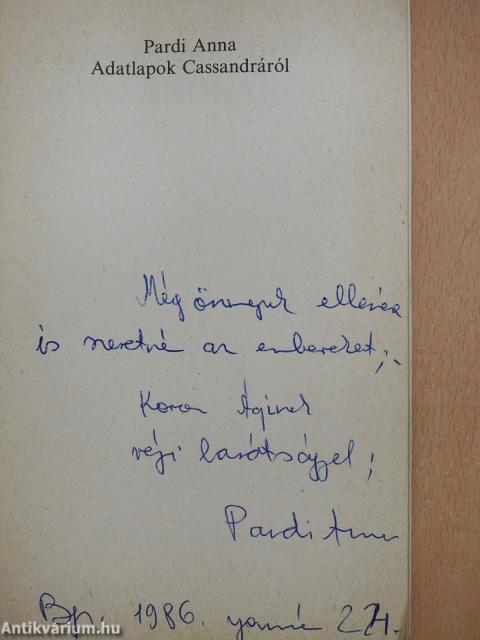 Pardi Anna
Adatlapok Cassandráról
Még önmaguk ellenére
is szeretné az embereket;
Koron Áginak
régi barátsággal;
Pardi Anna
Bp. 1986.
Antikvárium.hu